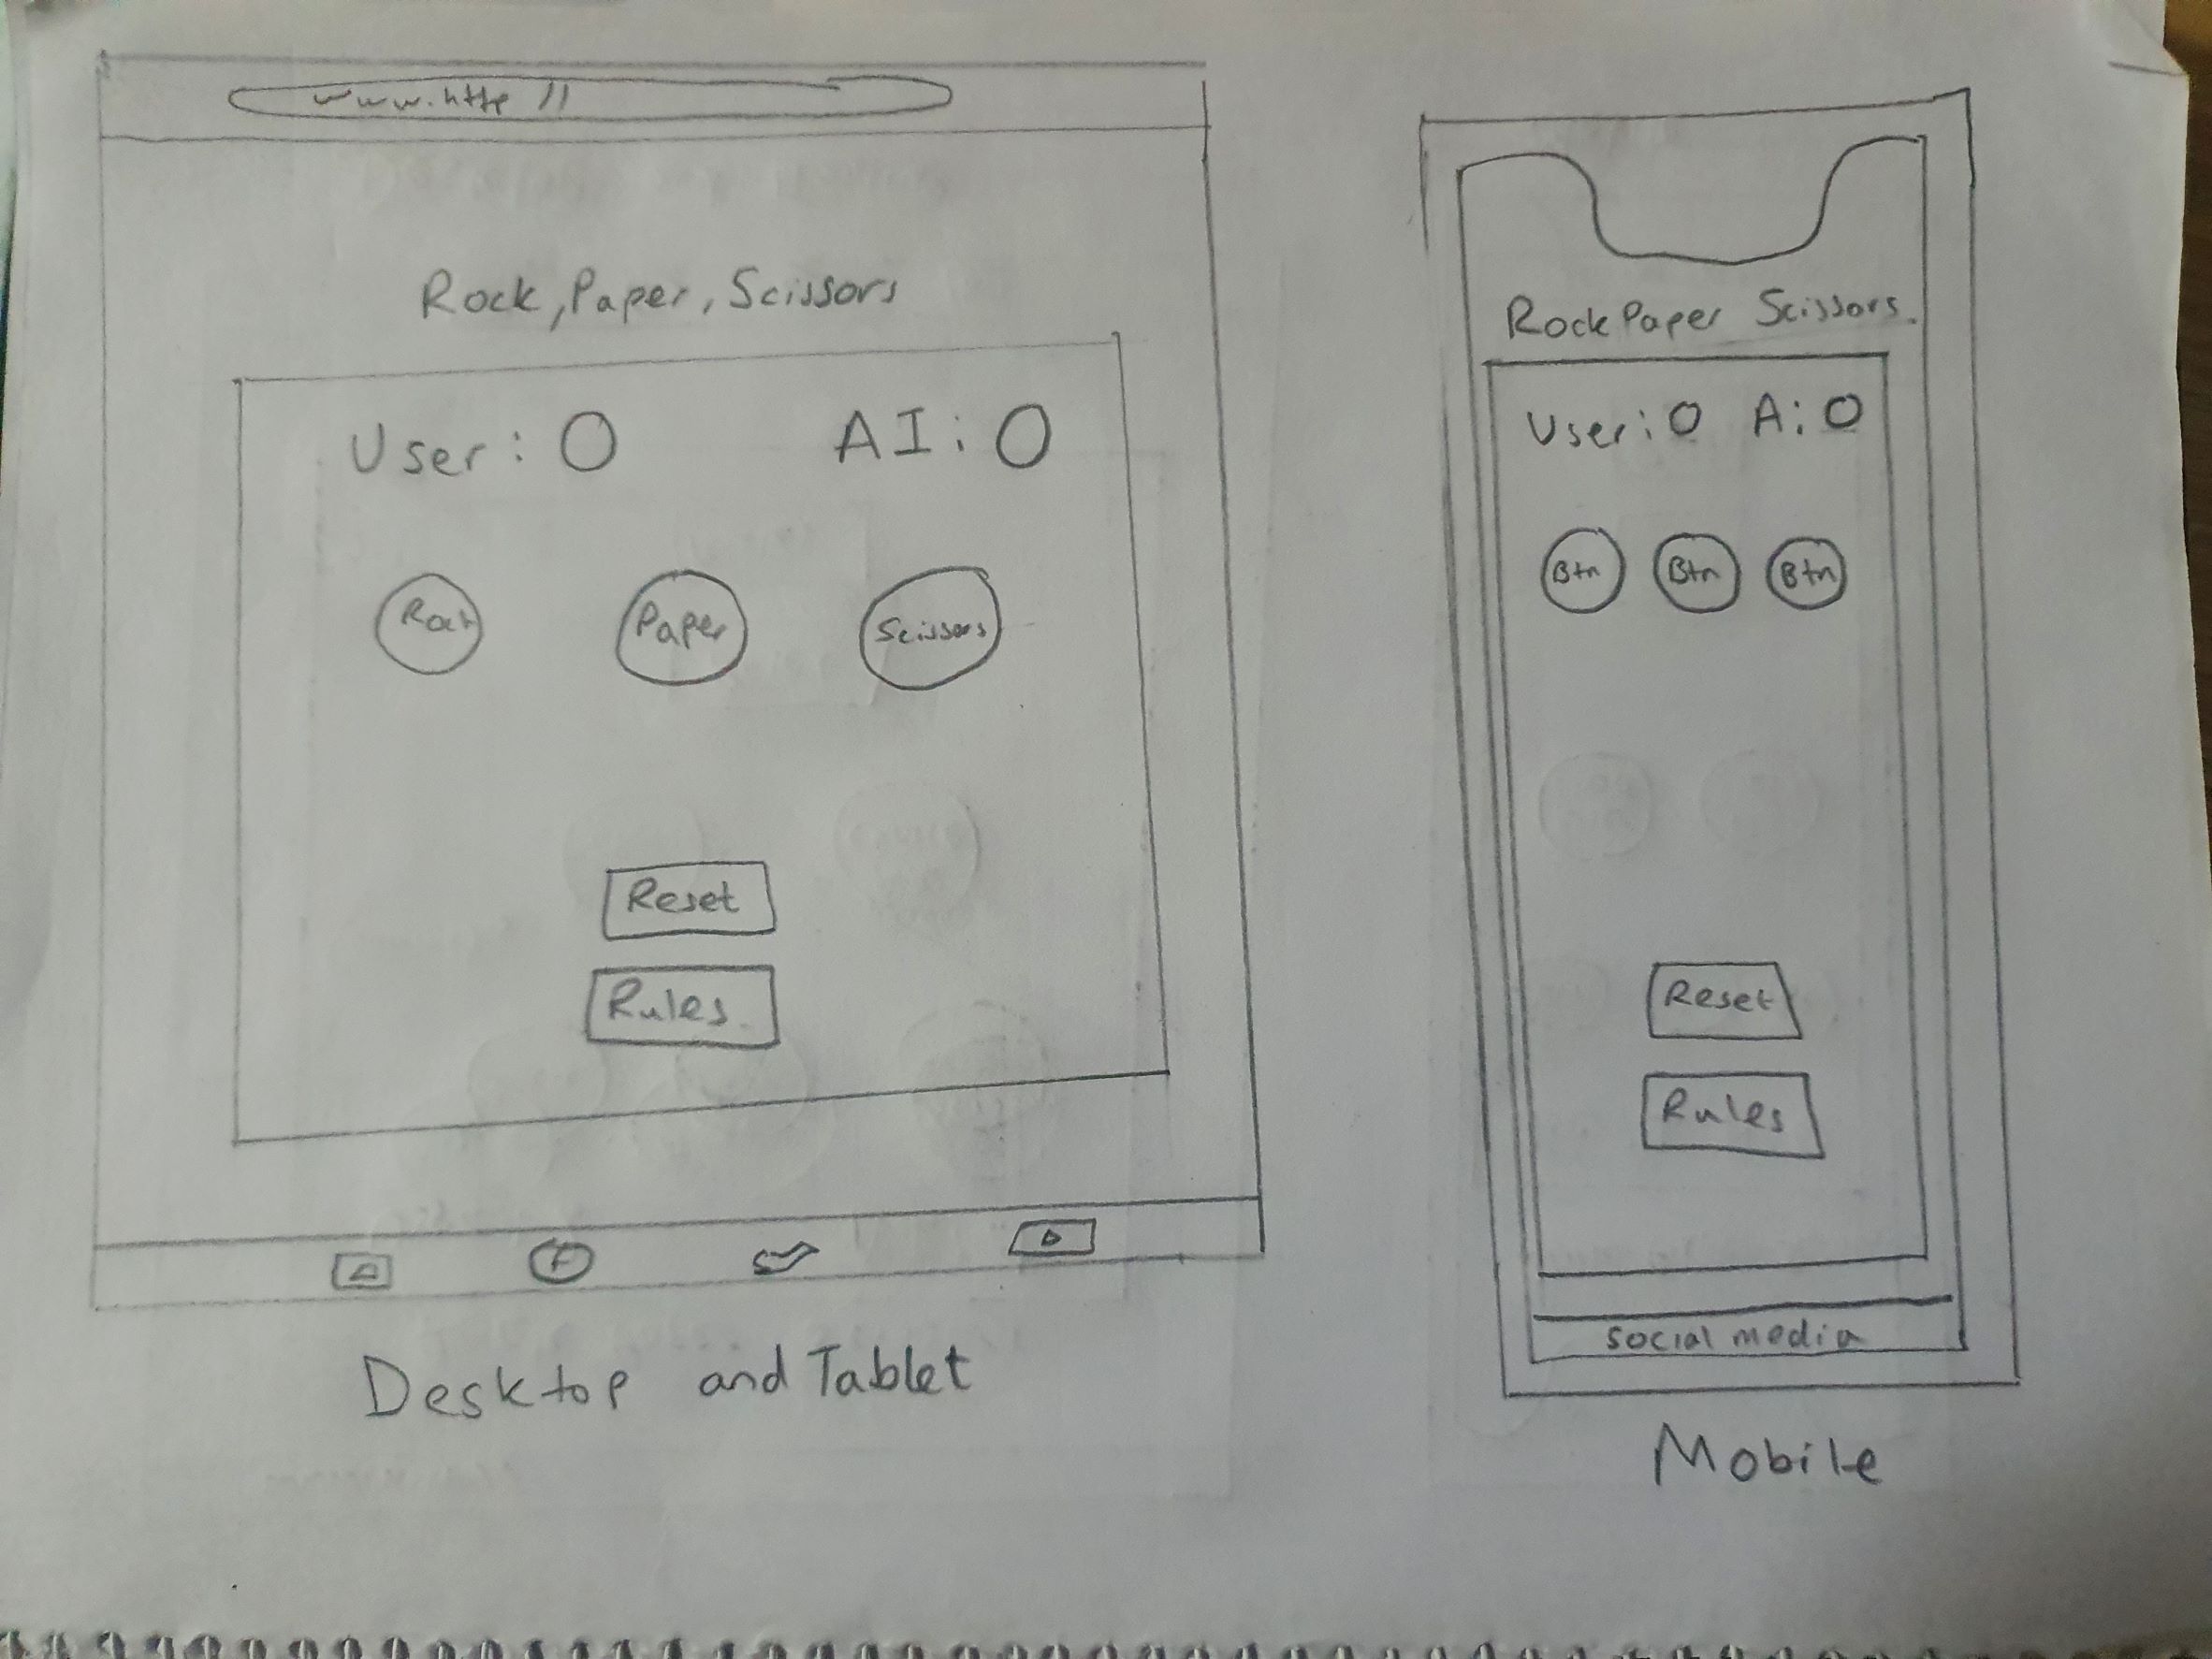 www.http //
Rock, Paper, Scissors
User: 0 AI: 0
Rock Paper Scissors
Reset
Rules
f
Desktop and Tablet
Rock Paper Scissors.
User: 0 A: 0
Btn Btn Btn
Reset
Rules
social media
Mobile